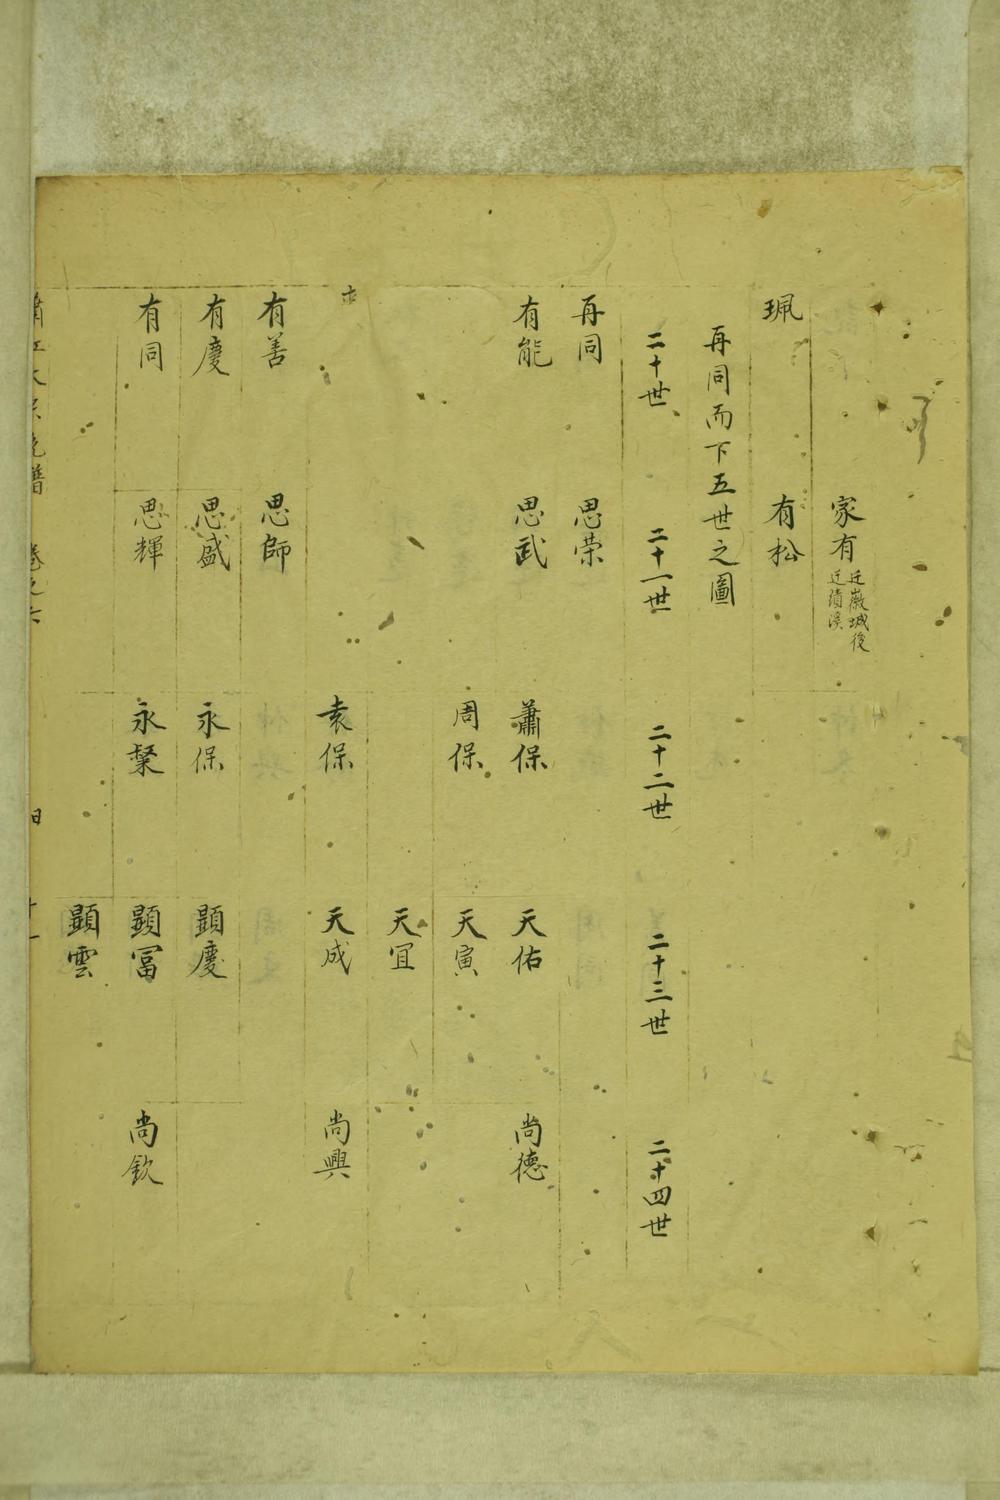 家有 迁徽城後
迁績溪
珮 有松
再同而下五世之圖
二十世 二十一世 二十二世 二十三世 二十四世
再同 思荣
有能 思武 蕭保 天佑 尚德
周保 天寅
天宜
袁保 天成 尚興
有善 思師
有慶 思盛 永保 顕慶
有同 思輝 永棸 顕冨 尚欽
顕雲
蕭江大宗統譜 卷之六 十一